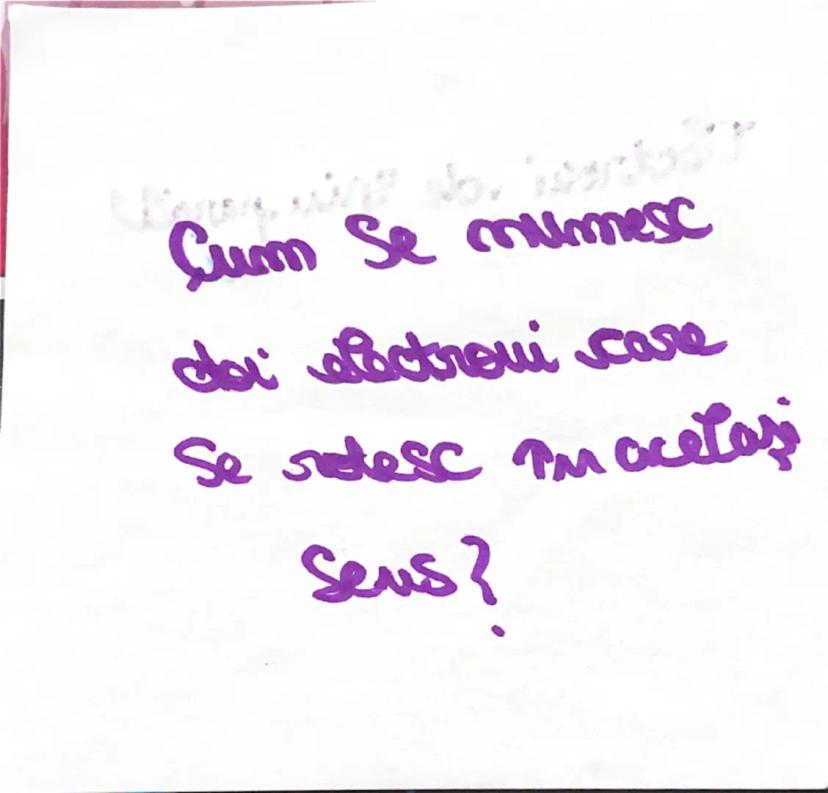 Cum se numesc
doi electroni care
se rotesc în același
sens?